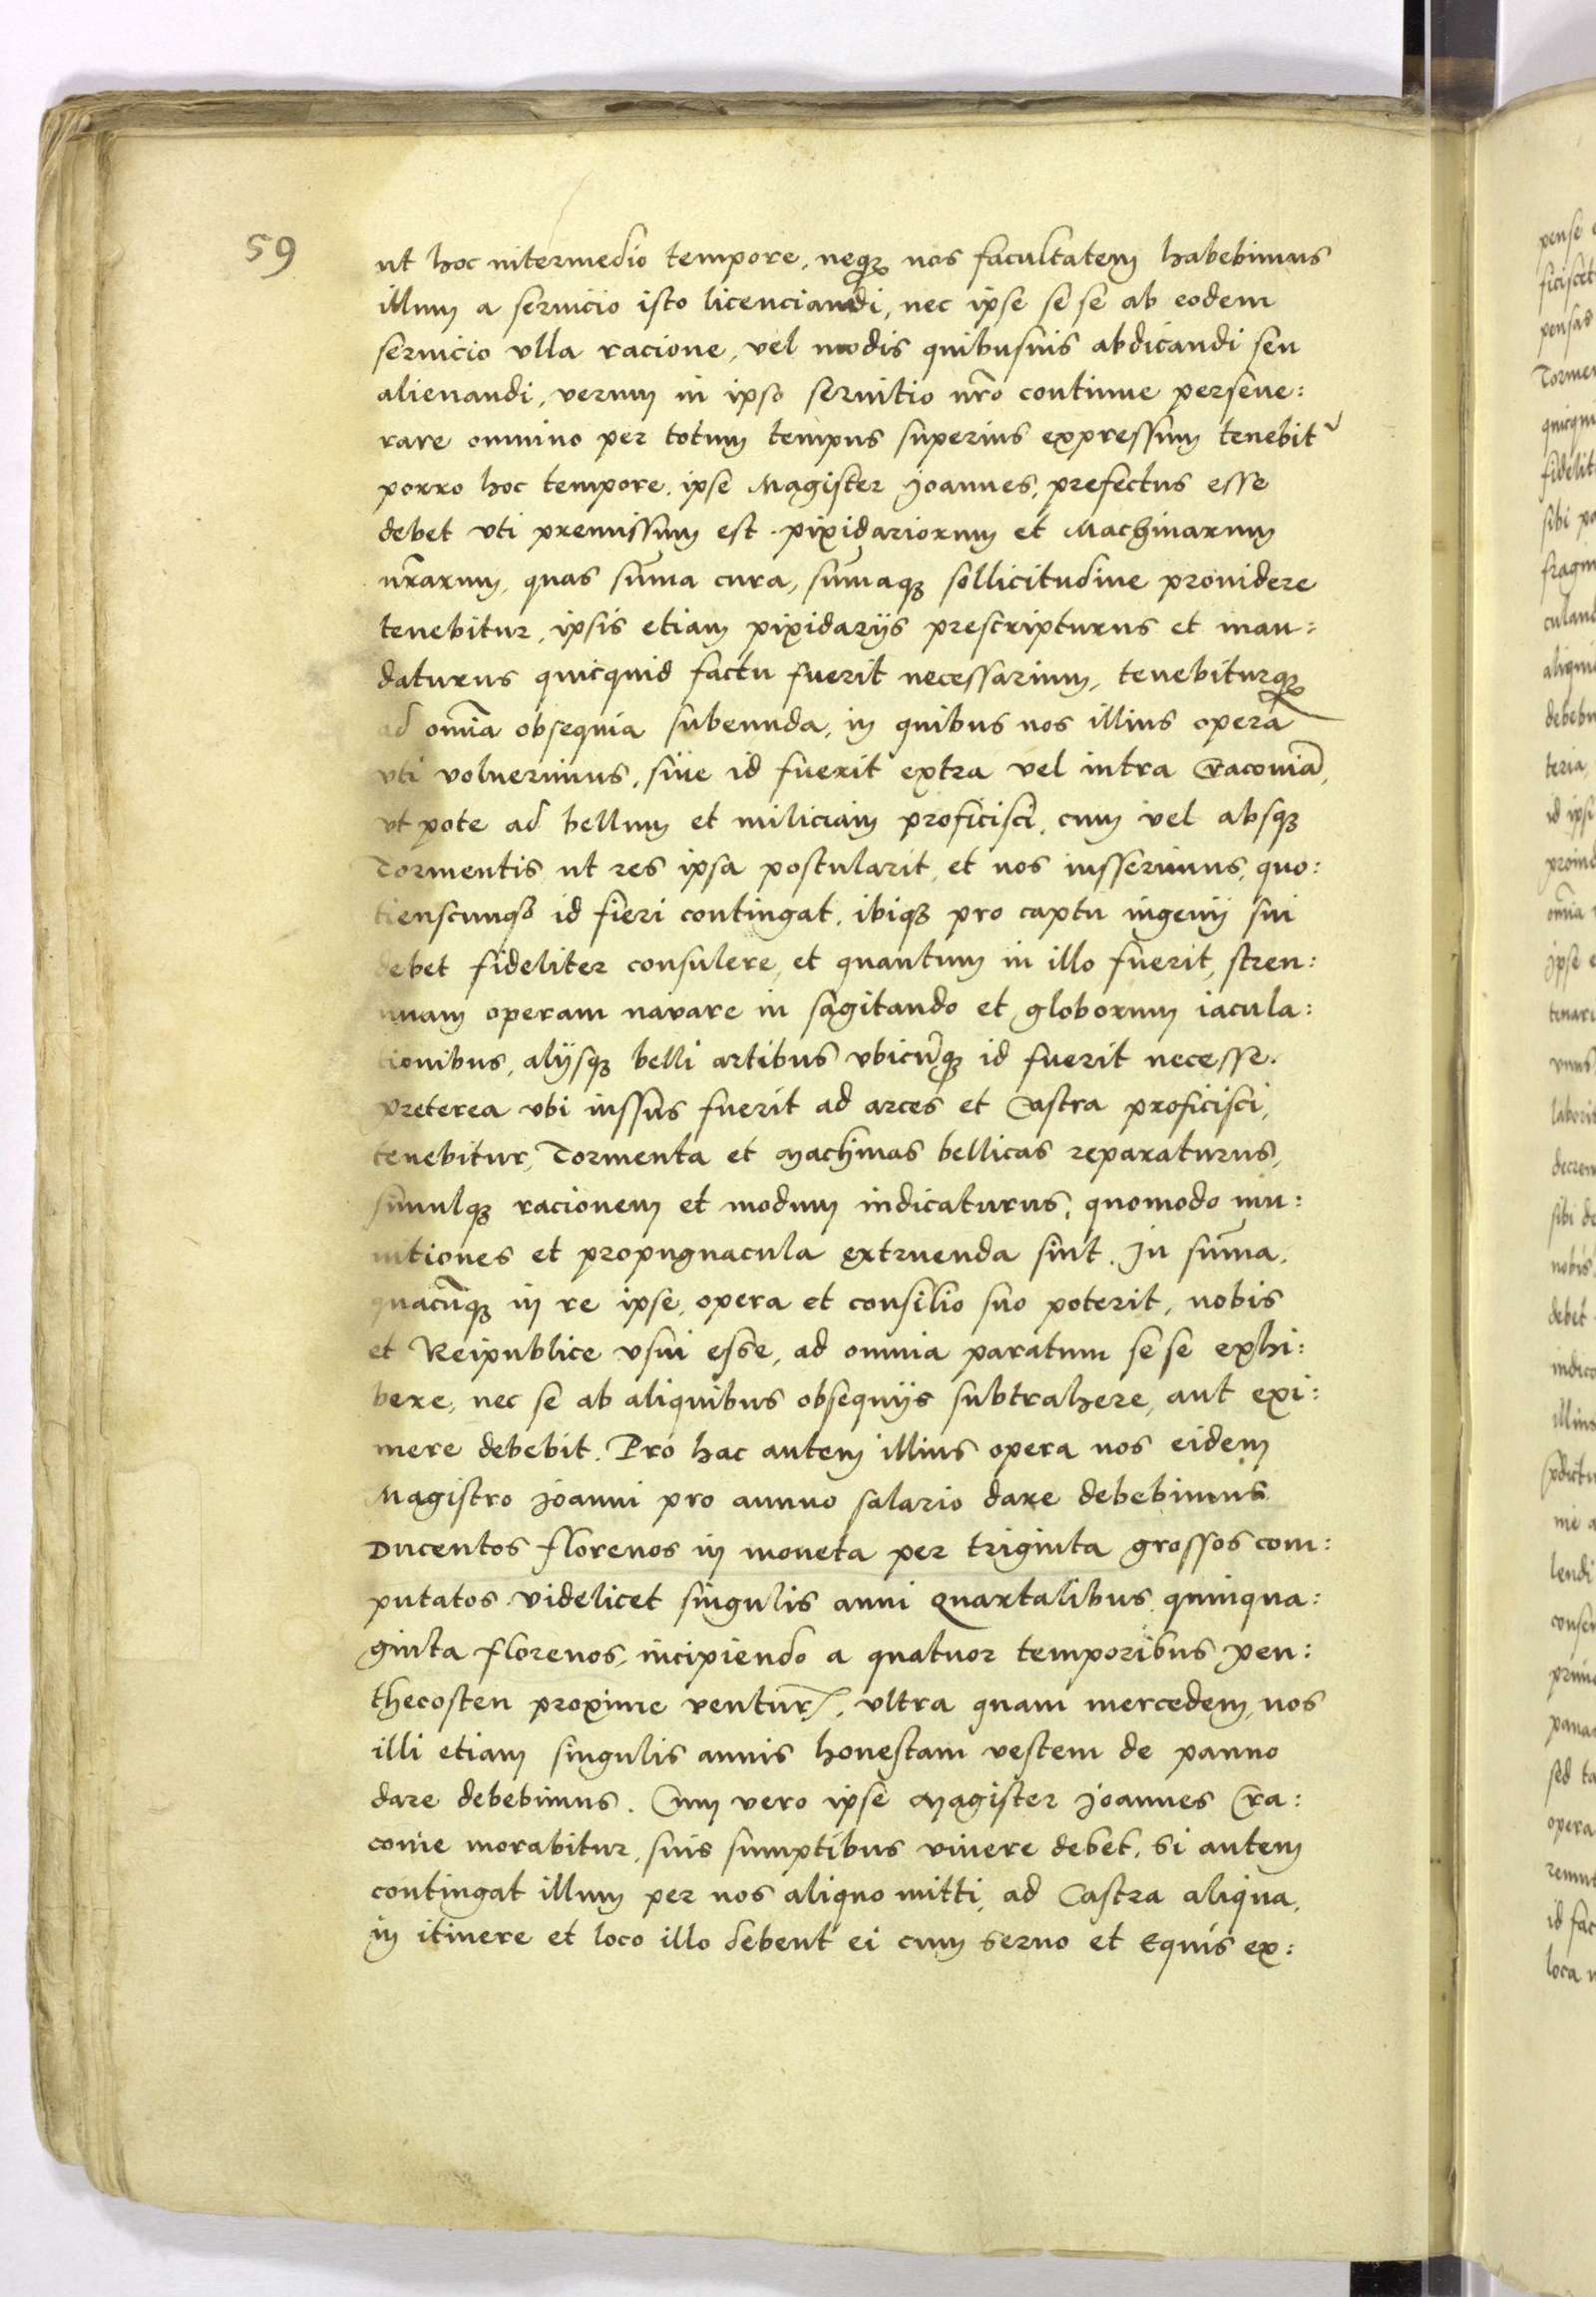 59
ut hoc intermedio tempore, neqꝫ nos facultatem habebimus
illum a seruicio isto licenciandi, nec ipse se se ab eodem
seruicio vlla racione, vel modis quibusuis abdicandi seu
alienandi, verum in ipso seruitio nr̃o continue perseue:
rare omnino per totum tempus superius expressum tenebit᷑
porro hoc tempore, ipse Magister Joannes, prefectus esse
debet vti premissum est. pixidariorum et Machinarum
nr̃arum, quas sum̃a cura, sum̃aqꝫ sollicitudine prouidere
tenebitur, ipsis etiam pixidarijs prescripturus et man:
daturus quicquid factu fuerit necessarium, tenebiturqꝫ
ad om̃ia obsequia subeunda, in quibus nos illius opera
vti voluerimus, siue id fuerit extra vel intra Cracouiã,
vt pote ad bellum et miliciam proficisci, cum vel absqꝫ
Tormentis ut res ipsa postularit, et nos iusserimus, quo:
tienscunqꝫ id fieri contingat, ibiqꝫ pro captu ingenij sui
debet fideliter consulere, et quantum in illo fuerit, stren:
uuam operam nauare in sagitando et globorum iacula:
tionibus, alijsqꝫ belli artibus vbicũqꝫ id fuerit necesse.
preterea vbi iussus fuerit ad arces et Castra proficisci,
tenebitur, Tormenta et Machinas bellicas reparaturus,
simulqꝫ racionem et modum indicaturus, quomodo mu:
nitiones et propugnacula extruenda sint. In sum̃a,
quacũqꝫ in re ipse, opera et consilio suo poterit, nobis
et Reipublice vsui esse, ad omnia paratum se se exhi:
bere, nec se ab aliquibus obsequijs subtrahere, aut exi:
mere debebit. Pro hac autem illius opera nos eidem
Magistro Joanni pro annuo salario dare debebimus
Ducentos florenos in moneta per triginta grossos com:
putatos videlicet singulis anni quartalibus quinqua:
ginta florenos, incipiendo a quatuor temporibus pen:
thecosten proxime ventur̃, vltra quam mercedem, nos
illi etiam singulis annis honestam vestem de panno
dare debebimus. Cum vero ipse Magister Joannes Cra:
couie morabitur, suis sumptibus viuere debet. Si autem
contingat illum per nos aliquo mitti, ad Castra aliqua,
in itinere et loco illo debent ei cum seruo et Equis ex: